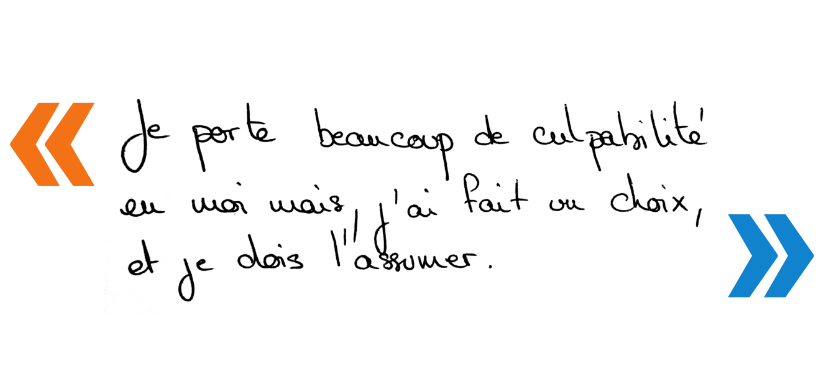 « Je porte beaucoup de culpabilité
en moi mais, j'ai fait un choix,
et je dois l'assumer. »